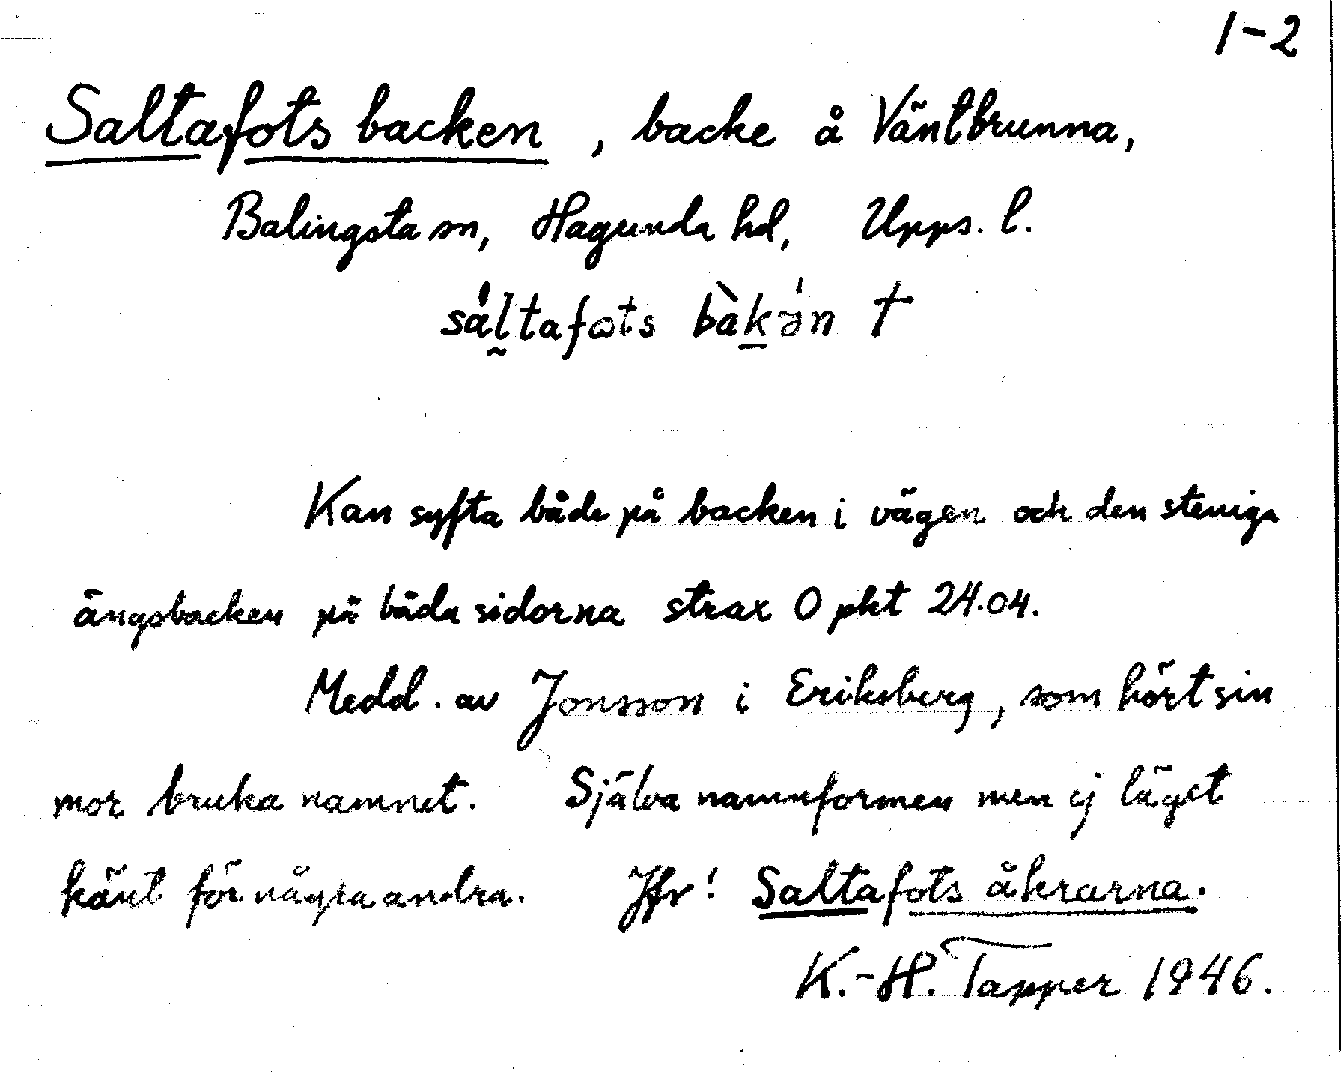 1-2
Saltafots backen, backe å Väntbrunna,
Balingsta sn, Hagunda hd, Upps. l.
sáltafots bàkə́n †
Kan syfta både på backen i vägen och den steniga
ängsbacken på båda sidorna strax O pkt 24.04.
Medd. av Jonsson i Eriksberg, som hört sin
mor bruka namnet. Själva namnformen men ej läget
känt för några andra. Jfr! Saltafots åkrarna.
K.-H. Tapper 1946.